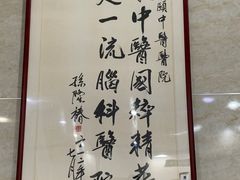 頤中醫醫院
中醫國粹精
一流腦科醫院
孫隆椿